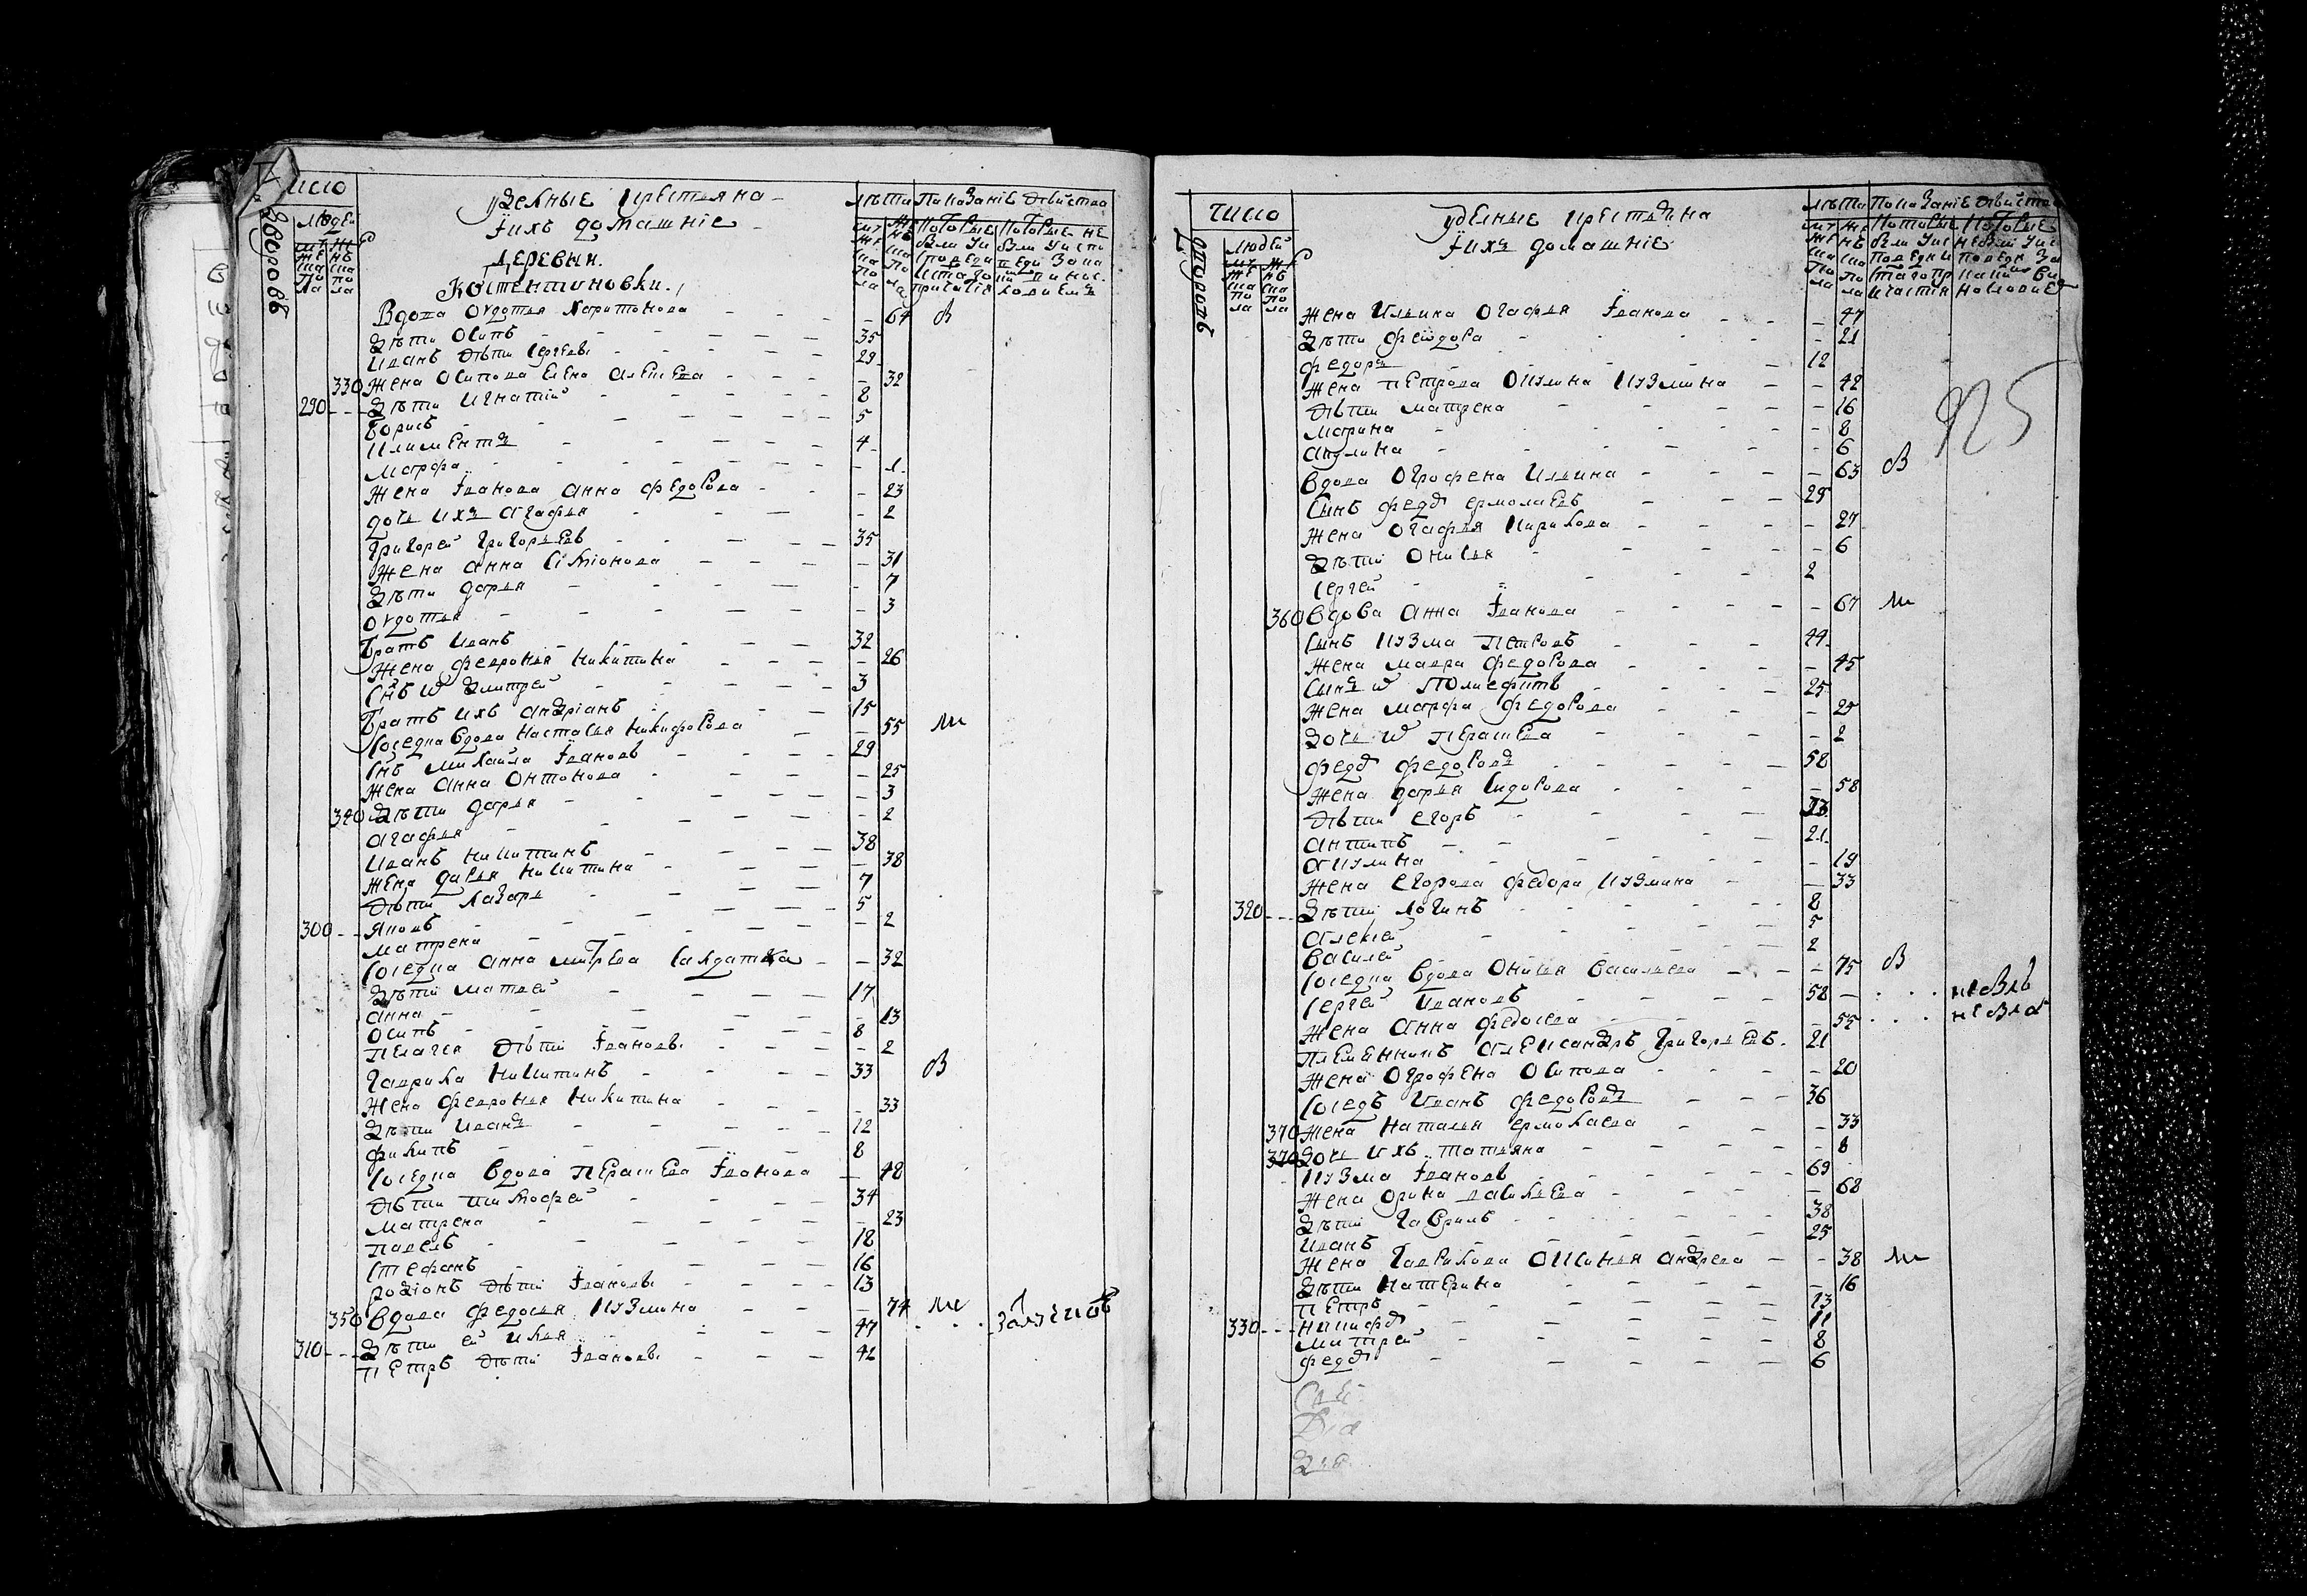 число
людей
дворовъ
удельные крестьяна
їихъ домашніе
деревни
Костентиновки
лѣта
показаніе действа
Вдова Овдотья Харитонова - 64 В
Дѣти Осипъ - 35
Иванъ дѣти Сергѣевы - 29
330 Жена Осипова Елена Алешева - 32
290 Дѣти Игнатій - 8
Борисъ - 5
Климентъ - 4
Марфа - 1
Жена Їванова Анна Федорова - 23
дочь ихъ Агафья - 2
Григорей Григорьевъ - 35
Жена Анна Симионова - 31
Дѣти Дарья - 7
Овдотья - 3
Братъ Иванъ - 32
Жена Февронья Никитина - 26
Снъ ѡ Дмитрей - 3
Братъ ихъ Андріанъ - 15
Соседка вдова Настасья Никифорова - 55 М
Снъ Михайла Ївановъ - 29
Жена Анна Онтонова - 25
340 Дѣти Дарья - 3
Агафья - 2
Иванъ Никитинъ - 38
Жена Дарья Никитина - 38
Дѣти Лазарь - 7
300 Яковъ - 5
Матрена - 2
Соседка Анна Митрева салдатка - 32
Дѣти Матвей - 17
Анна - 13
Осипъ - 8
Пелагея дѣти Ївановы - 2
Гаврила Никитинъ - 33 В
Жена Февронья Никитина - 33
Дѣти Иванъ - 12
Филипъ - 8
Соседка вдова Перашева Їванова - 48
Дѣти Тимофей - 34
Матрена - 23
Павелъ - 18
Стефанъ - 16
Родіонъ дѣти Ївановы - 13
350 Вдова Федосья Кузмина - 74 М
310 Дѣти ей Илья - 47
Петръ дѣти Ївановы - 42
число
людей
дворовъ
удельные крестьяна
їихъ домашніе
лѣта
показаніе действа
Жена Ильина Огафья Їванова - 47
Дѣти Федора - 21
Федоръ - 12
Жена Петрова Окулина Кузмина - 42
Дѣти Матрена - 16
Марина - 8
Акулина - 6
Вдова Огрофена Ильина - 63 В
925
Сынъ Федр Ермолаевъ - 29
Жена Огафья Кирилова - 27
Дѣти Онисья - 6
Сергей - 2
360 Вдова Анна Їванова - 67 М
Сынъ Кузма Петровъ - 44
Жена Мавра Федорова - 45
Жена Марфа Федорова - 25
Дочь ѡ Перашева - 2
Федр Федоровъ - 58
Жена Дарья Сидорова - 58
Дѣти Егоръ - 33
Антипъ - 21
Акулина - 19
Жена Егорова Федора Кузмина - 33
320 Дѣти Логинъ - 8
Алексей - 5
Василей - 2
Соседка вдова Онисья Васильева - 75 В
Сергей Ивановъ - 58
Жена Анна Федосева - 55
Племянникъ Александръ Григорьевъ - 21
Жена Огрофена Осипова - 20
Соседъ Иванъ Федоровъ - 36
370 Жена Наталья Ермолаева - 33
370 Дочь ихъ Татьяна - 8
Кузма Ївановъ - 69
Жена Орина Васильева - 68
Дѣти Гаврилъ - 38
Иванъ - 25
Жена Гаврилова Оксинья Андрева - 38 М
Дѣти Катерина - 16
Петръ - 13
330 Никифр - 11
Митрей - 8
Федр - 6